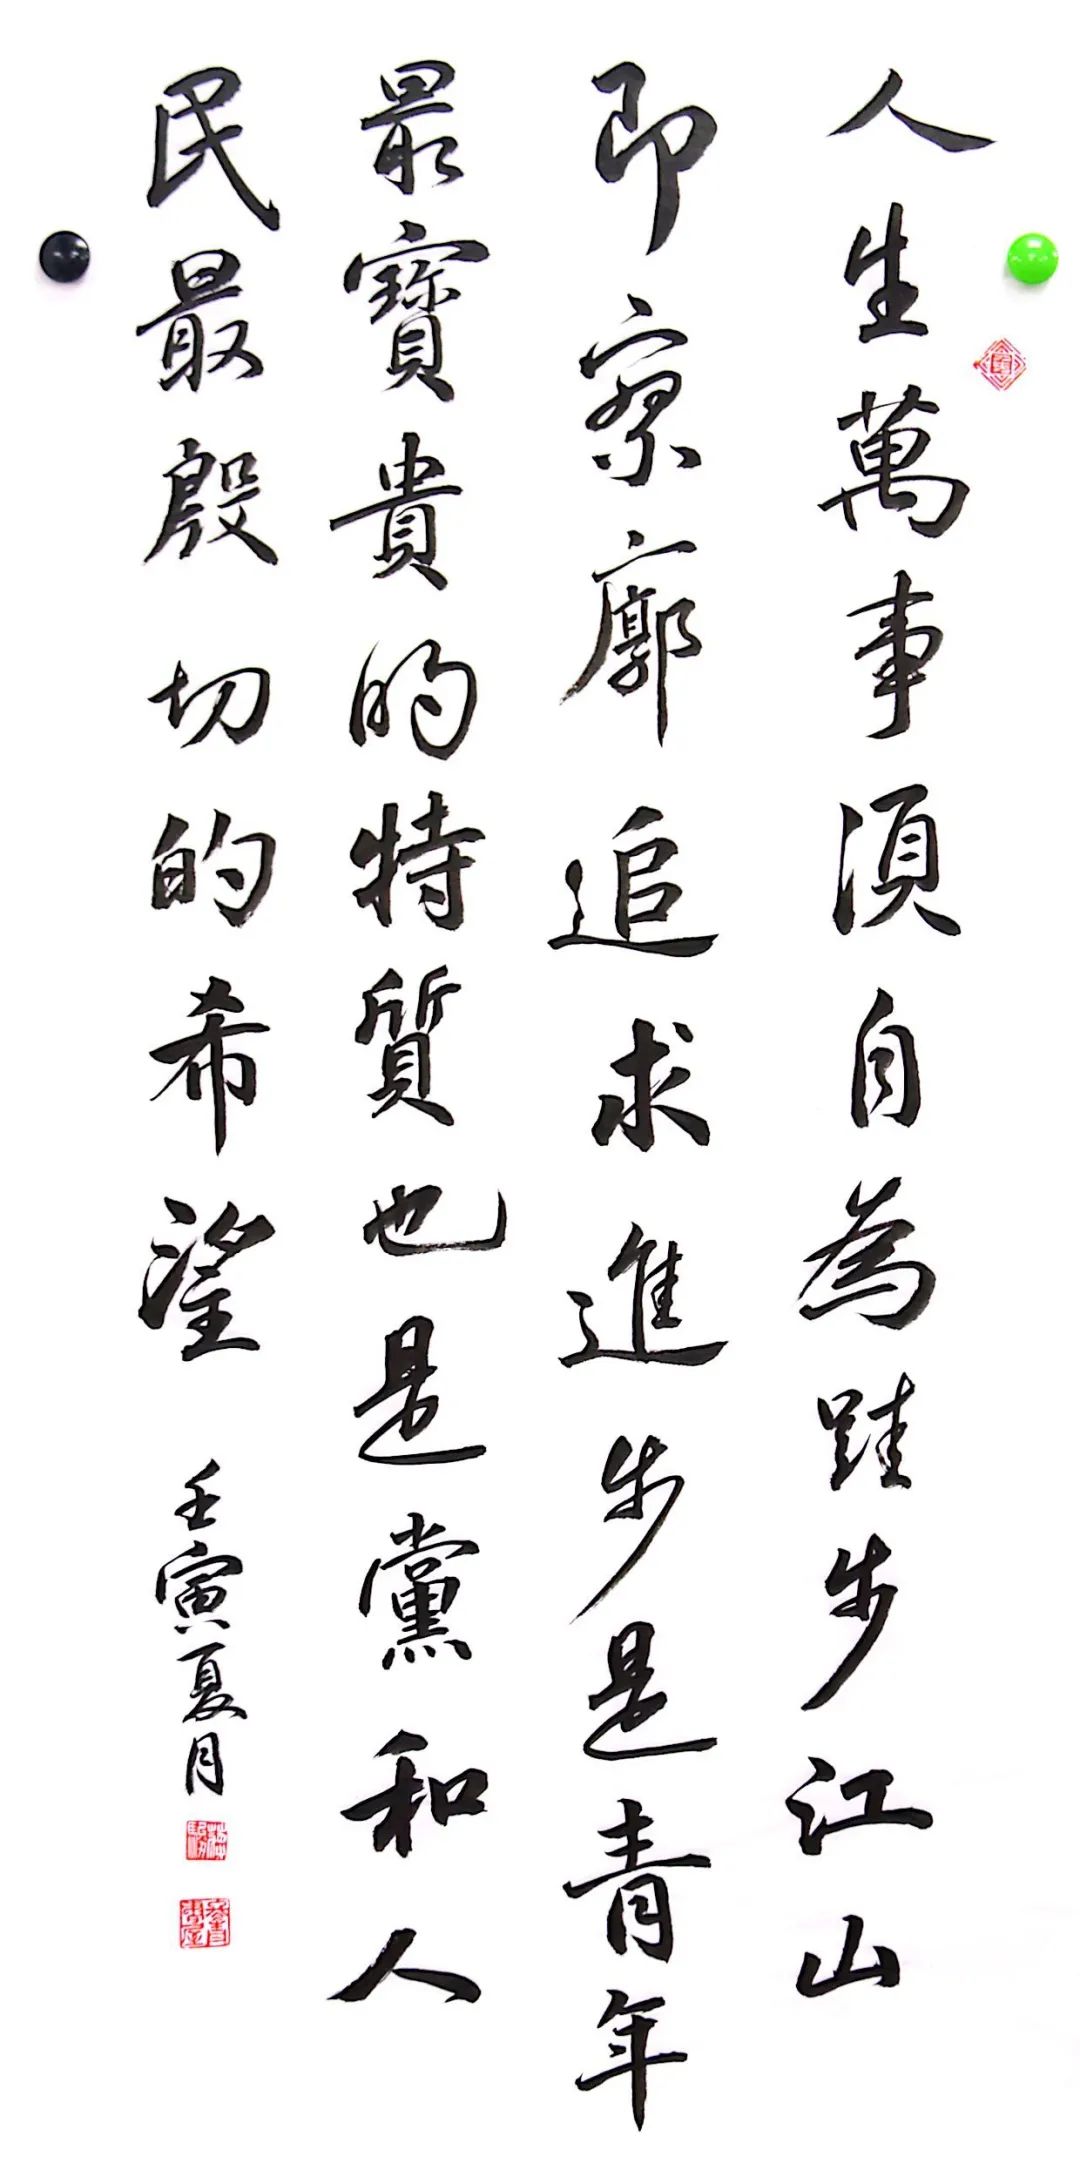 人生萬事須自為跬步江山
即寥廓追求進步是青年
最寶貴的特質也是黨和人
民最殷切的希望
壬寅夏月